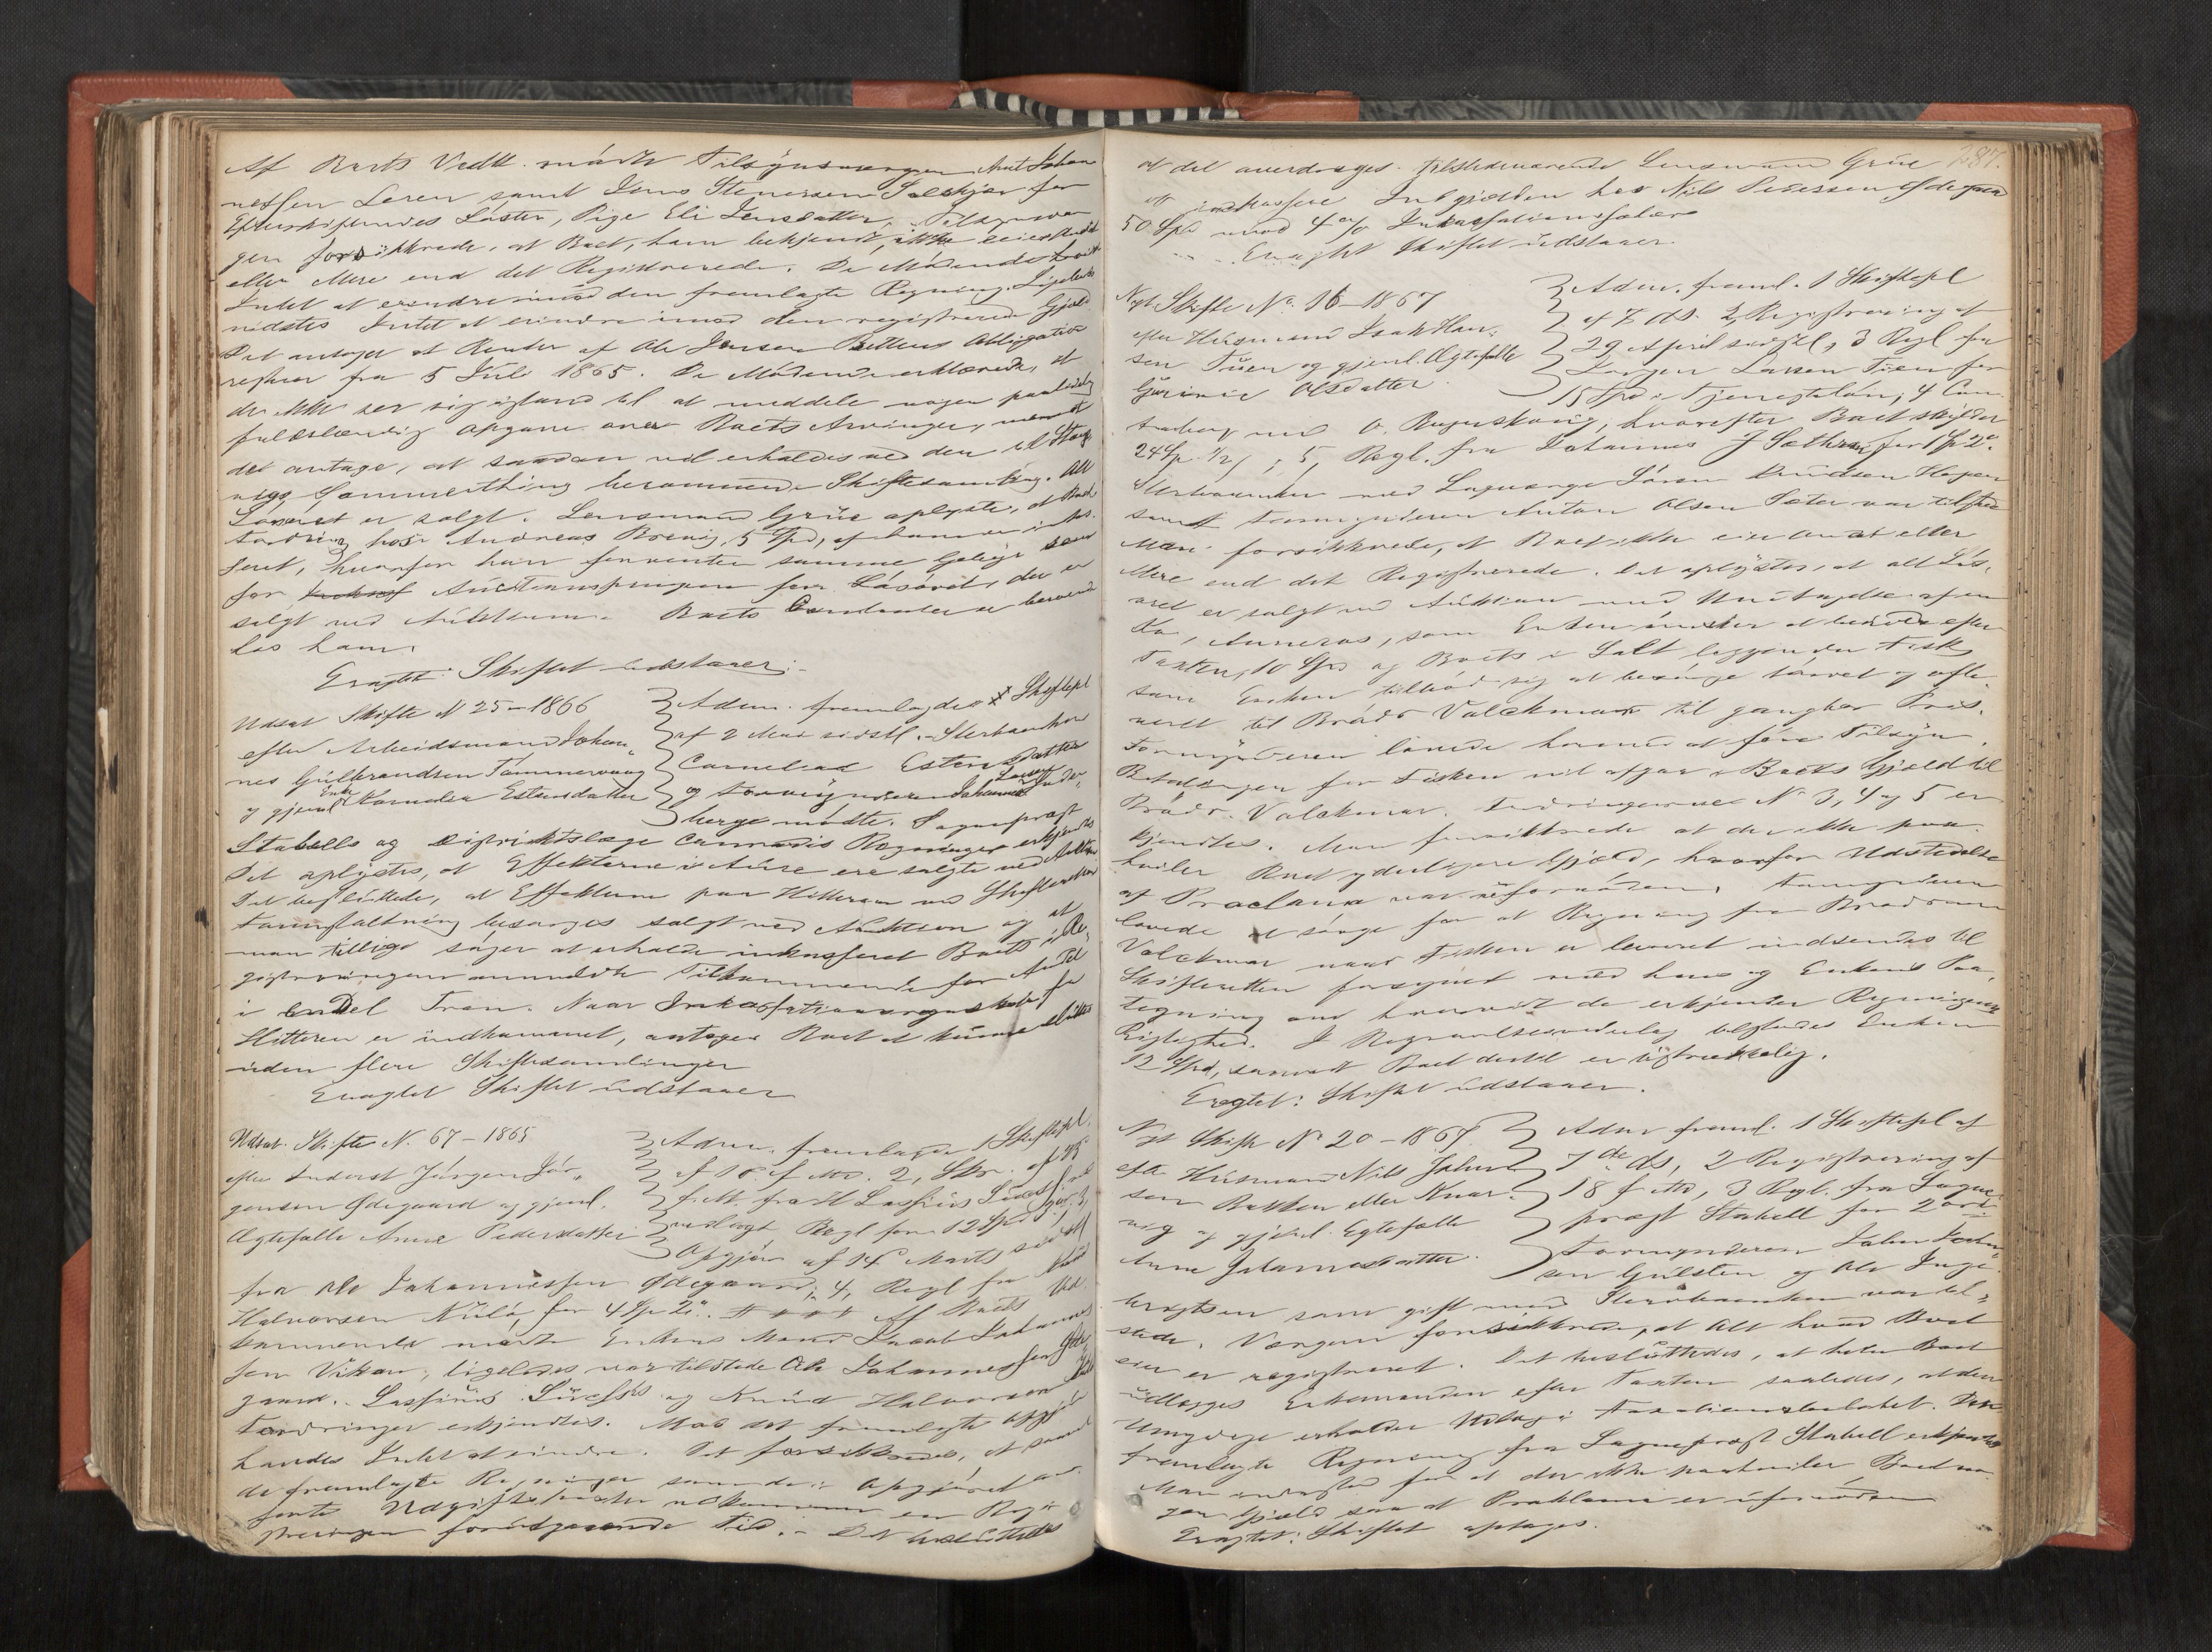 Af Boets Vedk. mødte Tilsynsværgen Knut Johan
nessen Leren samt Jens Stenersen Selskjær for
Efterskifterindes Søster, Pige Eli Jensdatter. Tilsynsvær
gen forsikkrede, at Boet, ham bekjendt, ikke eier Andet
eller Mere end det Registrerede. De Mødende havde
Intet at erindre imod den fremlagte Regning. Ligeledes
vidstes Intet at erindre imod den registrerede Gjæld
Det antoges at Renter af Ole Jensen Obligation
resterer fra 5 Juli 1865. De Mødende erklærede, at
de ikke ser sig istand til at meddele nogen paalidelig
fuldstændig Opgave over Boets Arvinger, men at
det antages, at saadan vil erholdes ved den til
Sommerthing berammede Skiftesamling. Alt
Løsøret er solgt. Lensmand Grüe oplyste, at Boets
Fordring hos Andreas 5 Spd, af ham er indkas
seret, hvorfor han forventer samme tillige
for Auctionspengene for Løsøret, der er
solgt ved Auktion. Boets Contanter er beroende
hos ham.
Eragtet: Skiftet udstaaer.
Udsat Skifte N 25 – 1866
efter Arbeidsmand Johan
nes Gulbrandsen Tømmervaag
og gjenl. Enke Kornelia Estensdatter
Adm. fremlagde Skiftepl
af 2 Mai sidstl. – Sterboenken
Cornelia Estensdatter
og Formynderen Johannes Larsen
berge mødte. Sognepræst
Stabells og Distriktslæge Regninger erkjendtes
Det oplystes, at Effekterne i Aure ere solgte ved Auktion
Det besluttedes, at Effekterne paa Hitteren ved Skifterettens
Foranstaltning besørges solgt ved Auktion og at
man tillige søger at erholde inkasseret Boets i Re
gistreringen anmeldte Tilkommende for Andel
i en Del Tran. Naar Inkassationsregnskab fra
Hitteren er indkommet, antoges Boet at kunne sluttes
uden flere Skiftesamlinger
Eragtet Skiftet udstaaer
Udsat Skifte N. 67 – 1865
efter Inderst Jørgen Jør
gensen Ødegaard og gjenl.
Ægtefælle Anne Pedersdatter
Adm. fremlagde 1 Skiftepl.
af 18 f. Md. 2, Skr. af
f. M. fra Lassinus
vedlagt Regl for 12 Spd
Opgjør af 14 Marts sidstl
fra Ole Johannessen Ødegaard, 4, Regl fra
Halvorsen for 4 Spd 2 Af Boets Ved
kommende mødte Enkens Mand Jacob Johannes
sen Viken, ligeledes var tilstede Ole Johannessen Øde
gaard. Lassinus og Knud Halvorsen
Fordringer erkjendtes. Mod det fremlagte Opgjør
havdes Intet at erindre. Det forsikkredes, at saavel
de fremlagte Regninger som de i Opgjøret an
førte Udgiftsposter vedkommer en Regi
streringen forudgaaende Tid. – Det besluttedes
287.
at det overdroges tilstedeværende Lensmand Grüe
at indkassere Indgjælden hos Nils Pedersen
50 Spd mod 4 % Inkassationssalær
Eragtet Skiftet udstaaer.
Nyt Skifte No 16 – 1867
efter Husmand Isak Han
sen Tuen og gjenl. Ægtefælle
Gurine Olsdatter
Adm. freml. 1 Skiftepl
af 7 ds. 2, Registrering af
29 April sidstl, 3 Regl fra
Jørgen Larsen Tuen for
15 Spd i Tjenesteløn, 4 Con
trabog med hvorefter Boet skylder
24 Sp. 5, Regl. fra Johannes J Sæther for 1 Sp 2
Sterboenken med Laugværge Søren Knudsen
samt Formynderen Anton Olsen Sæter var tilstede
Man forsikkrede, at Boet ikke eier Andet eller
Mere end det Registrerede. Det oplystes, at alt Løs
øret er solgt ved Auktion med Undtagelse af en
Ko, Anneros, som Enken ønsker at beholde efter
Taxten, 10 Spd og Boets i Salt liggende Fisk
som Enken tilbød sig at besørge tørret og afle
veret til Brødr Volckmar til gangbar Pris.
Formynderen lovede hermed at føre Tilsyn.
Betalingen for Fisken vil afgaa i Boets Gjæld til
Brødr. Volckmar. Fordringerne N 3, 4 og 5 er
kjendtes. Man forsikkrede at der ikke paa
hviler Boet yderligere Gjæld, hvorfor Udstedelse
af Proclama var ufornøden. Formynderen
lovede at sørge for at Regning fra Brødrene
Volckmar naar Fisken er leveret indsendes til
Skifteretten forsynet med hans og Enkens Paa
tegning om hvorvidt de erkjender Regningens
Rigtighed. I Begravelsesvederlag tilstodes Enken
12 Spd, saavidt Boet dertil er tilstrækkelig.
Eragtet: Skiftet udstaaer.
Nyt Skifte No 20 – 1867.
efter Husmand Nils Johan
sen Bakken eller
og gjenl. Egtefælle
Anne Johannesdatter.
Adm freml. 1 Skiftepl af
7de ds, 2 Registrering af
18 f Md, 3 Regl. fra Sogne
præst Stabell for 2 ort
Formynderen Johan
sen Gulsten og Ole Inge
brigtsen som gift med Sterboenken var til
stede. Værgen forsikkrede, at Alt hvad Boet
eier er registreret. Det besluttedes, at hele Boet
udlægges Enkemanden efter Taxten saaledes, at den
Umyndige erholder Udlæg i Taxationsbeløbet. Den
fremlagte Regning fra Sognepræst Stabell erkjendtes
Man indestod for at der ikke paahviler Boet no
gen Gjæld saa at Proklama er ufornøden
Eragtet: Skiftet optages.